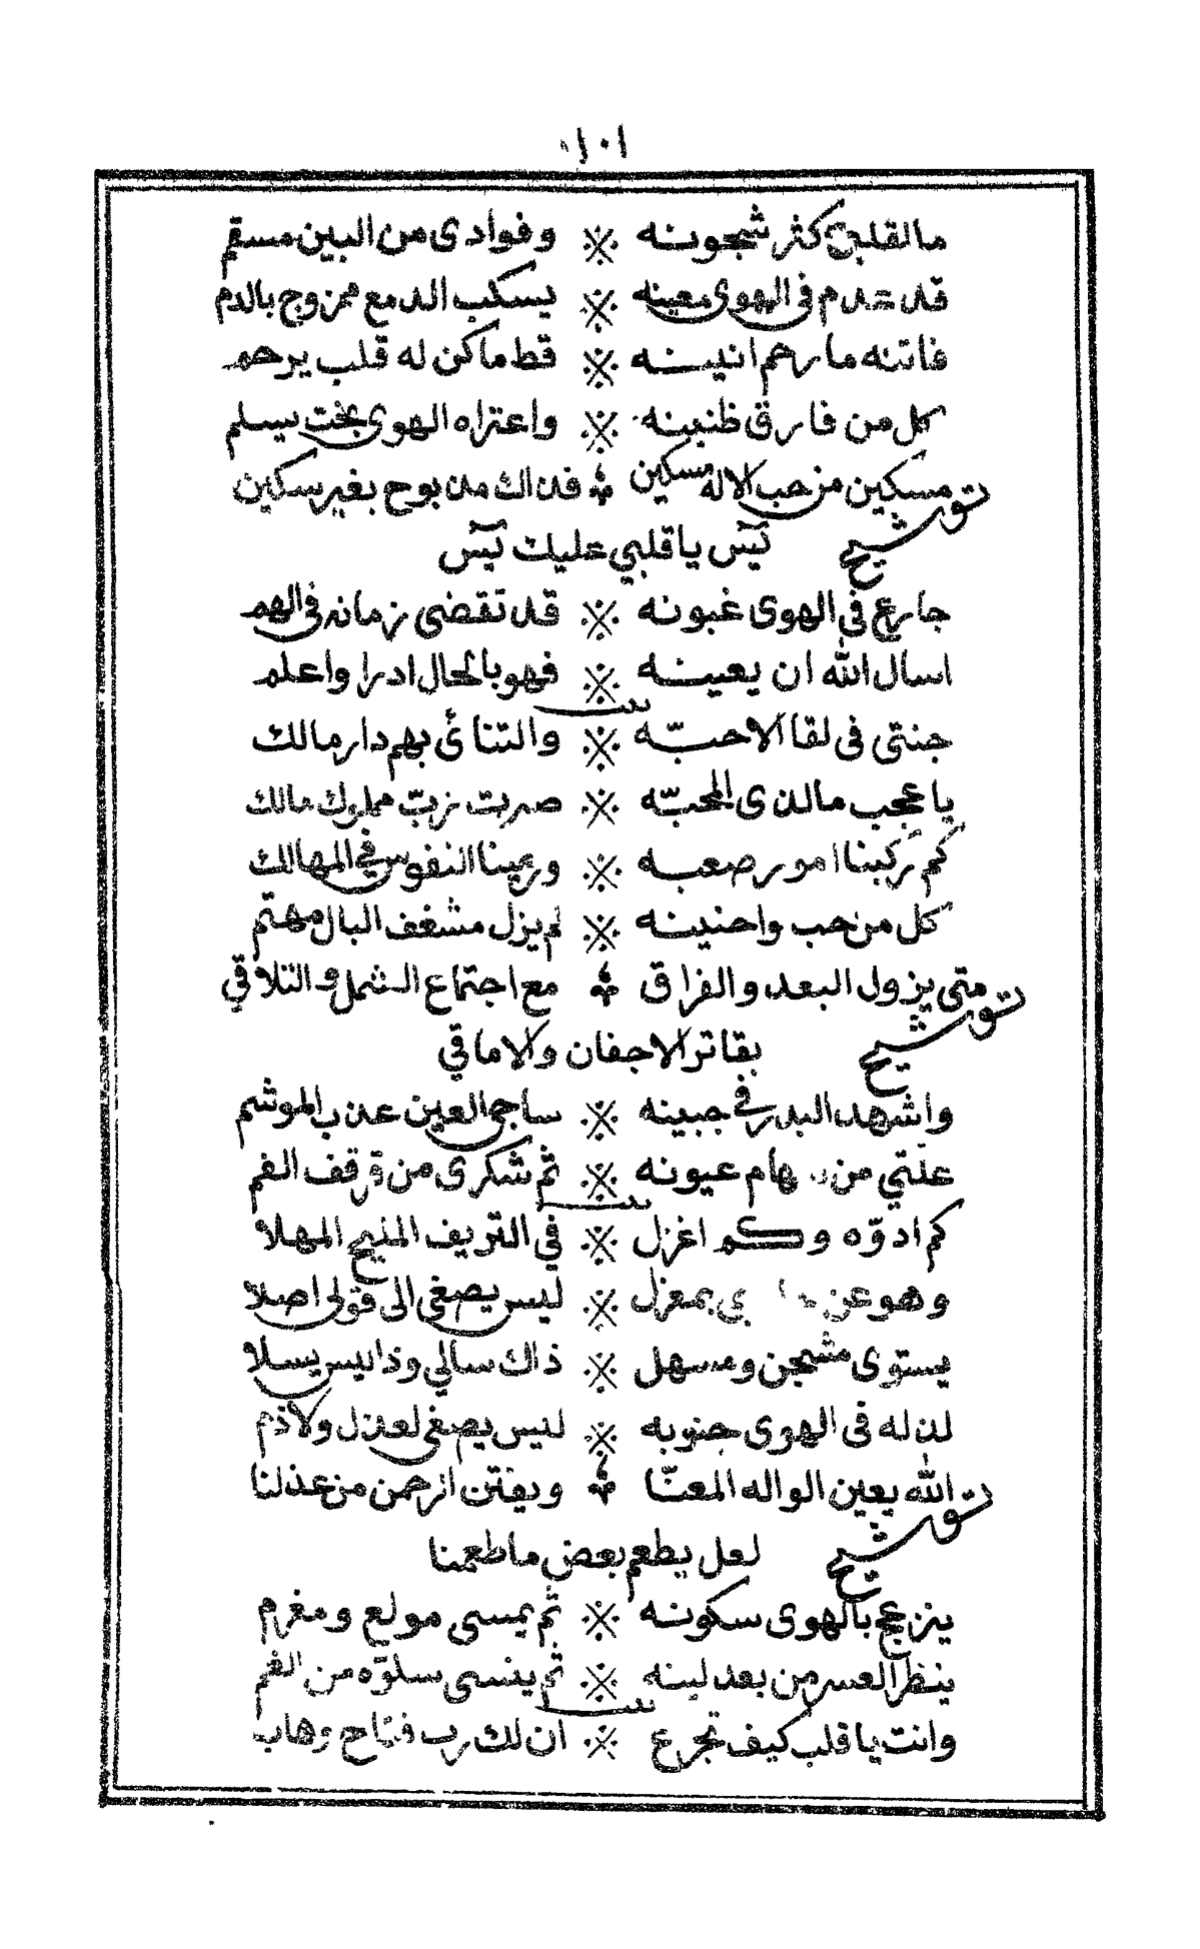 ١٠١
مالقلبي كثر شجونه ※ وفوادى من البين مسقم
قد عدم فى الهوى معينه ※ يسكب الدمع ممزوج بالدم
فاتنه ما رحم انينه ※ قط ماكن له قلب يرحم
كل من فارق ظنينه ※ واعتراه الهوى بخت يسلم
توشيح مسكين من حب الاله مسكين ؞ فذاك مذبوح بغير سكين
تيس ياقلبي عليك تيس
جارع فى الهوى غبونه ※ قد تقضى زمانه فى الهم
اسال الله ان يعينه ※ فهو بالحال ادرا واعلم
بيت
جنتى فى لقا الاحبّه ※ والتنائى بهم دار مالك
يا عجب مالذى المحبّه ※ صربت زبّ مملوك مالك
كم ركبنا امور صعبه ※ ورمينا النفوس في المهالك
كل من حب واحنينه ※ لم يزل مشغف البال مهتم
توشيح متى يزول البعد والفراق ؞ مع اجتماع الشمل والتلاقي
بفاتر الاجفان والاماقي
واشهد البدر في جبينه ※ ساجى العين عذب الموشم
علّتي من هام عيونه ※ ثم شكرى من قرقف الفم
بيت
كم ادوّه وكم اغزل ※ في التريف المليح المهلا
وهو عن بي بمعزل ※ ليس يصغى الى قولى اصلا
يستوى مشجن ومسهل ※ ذاك سالي وذا ليس يسلا
لذ له فى الهوى جنوبه ※ ليس يصغى لعذل ولا ذم
توشيح الله يعين الواله المعنّا ؞ ويفتن الرحمن من عذلنا
لعل يطعم بعض ماطعمنا
ينزعج بالهوى سكونه ※ ثم يمسى مولع ومغرم
ينظر العسر من بعد لينه ※ ثم ينسى سلوّه من الغم
بيت
وانت ياقلب كيف تجرع ※ ان لك رب فتاح وهاب